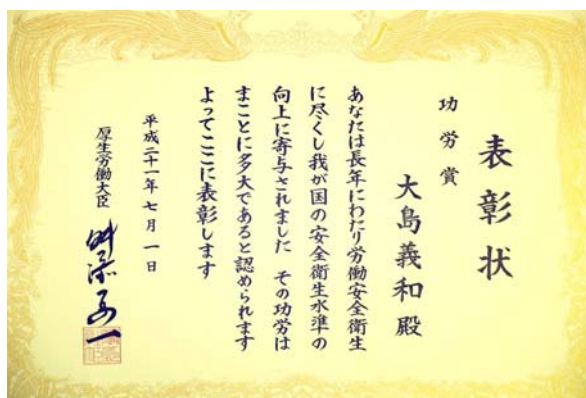 表彰状
功労賞
大島義和殿
あなたは長年にわたり労働安全衛生
に尽くし我が国の安全衛生水準の
向上に寄与されました その功労は
まことに多大であると認められます
よってここに表彰します
平成二十一年七月一日
厚生労働大臣
舛添要一